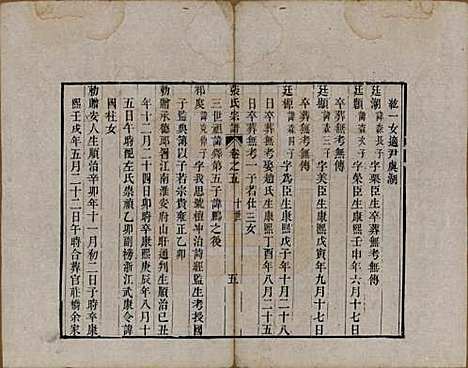 紘一女適尹虞湖
廷湖 諱森次子 字渠臣生卒葬無考無傳
廷顯 諱森三子 字榮臣生康熙壬申年六月十七日
卒葬無考無傳
廷顯 諱森四子 字 臣生康熙戊寅年九月十七日
卒葬無考無傳
廷 諱森五子 字為臣生康熙戊子年十月二十八
日卒葬無考娶趙氏生康熙丁酉年八月二十五
日卒葬無考一子若仕三女
張氏宗譜 卷之五 十世 五
三世祖諱舜第五子諱鵬之後
祁奐 諱 長子 字我思號檀坤治詩經監生考授國
子監典簿以子若宗貴雍正乙卯
勅贈承德郎江南淮安府山盱通判生順治己丑
年十二月二十四日卯時卒康熙庚辰年八月十
五日午時配左氏崇禎乙卯副榜浙江武康令諱
國柱女
勅贈安人生順治辛卯年十一月初二日子時卒康
熙壬戌年五月二十二日午時合葬官莊橋余家